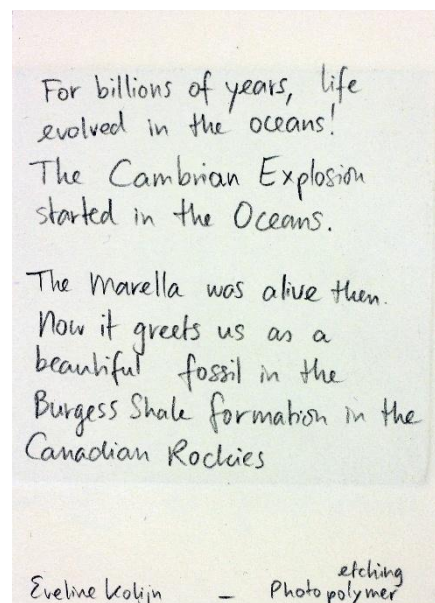 For billions of years, life
evolved in the oceans!
The Cambrian Explosion
started in the Oceans.
The Marella was alive then.
Now it greets us as a
beautiful fossil in the
Burgess Shale formation in the
Canadian Rockies
etching
Eveline Kolijn – Photopolymer